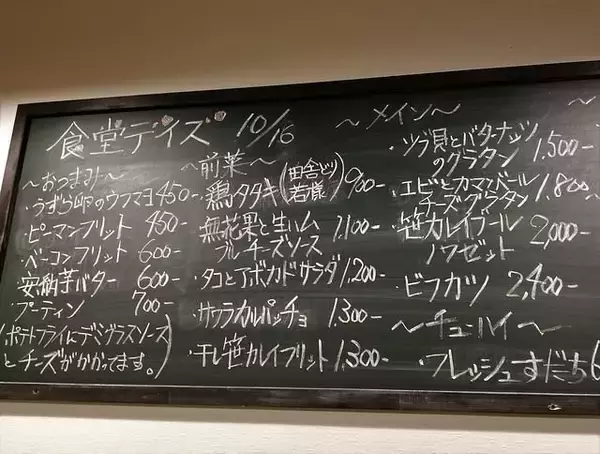 食堂デイズ 10/16
～おつまみ～
・うずら卵のウフマヨ 450-
・ピーマンフリット 450-
・ベーコンフリット 600-
・安納芋バター 600-
・プーティン 700-
(ポテトフライにデミグラスソース
とチーズがかかってます。)
～前菜～
・鶏タタキ(田舎どり 若様) 900-
・無花果と生ハム 1,100-
ブルーチーズソース
・タコとアボカドサラダ 1,200-
・サワラカルパッチョ 1,300-
・干し笹カレイフリット 1,300-
～メイン～
・ツブ貝とバターナッツ
のグラタン 1,500-
・エビとカマンベール
チーズグラタン 1,800-
・笹カレイブール
ノワゼット 2,000-
・ビフカツ 2,400-
～チューハイ～
・フレッシュすだち 6